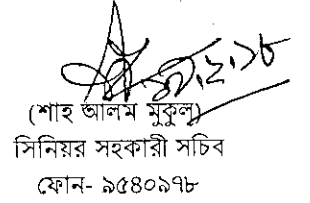 (শাহ আলম মুকুল)
সিনিয়র সহকারী সচিব
ফোন- ৯৫৪০১৭৮